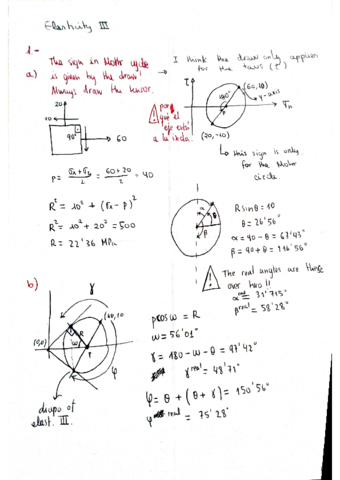 Elasticity III
1-
The sign in Mohr cycle
is given by the draw!
Always draw the tensor.
a)
→ I think the draw only applies
for the taus (τ)
20
10
90°
60
¡por
qué el
eje está
a la
τ
(60,10)
180°
P
y-axis
σn
(20,-10)
↳ this sign is only
for the Mohr
circle
P = (σx+σy)/2 = (60+20)/2 = 40
R² = 10² + (σx - P)²
R² = 10² + 20² = 500
R = 22'36 MPa
α
θ
β
R sin θ = 10
θ = 26'56°
α = 90 - θ = 63'43°
β = 90 + θ = 116'56°
The real angles are these
over two!!
α real = 31'715°
β real = 58'28°
b)
γ
(60,10)
R
ω
P
φ
(0,0)
diapo of
elast. III.
p cos ω = R
ω = 56'01°
γ = 180 - ω - θ = 97'42°
γ real = 48'71°
φ = θ + (θ + γ) = 150'56°
φ real = 75'28°